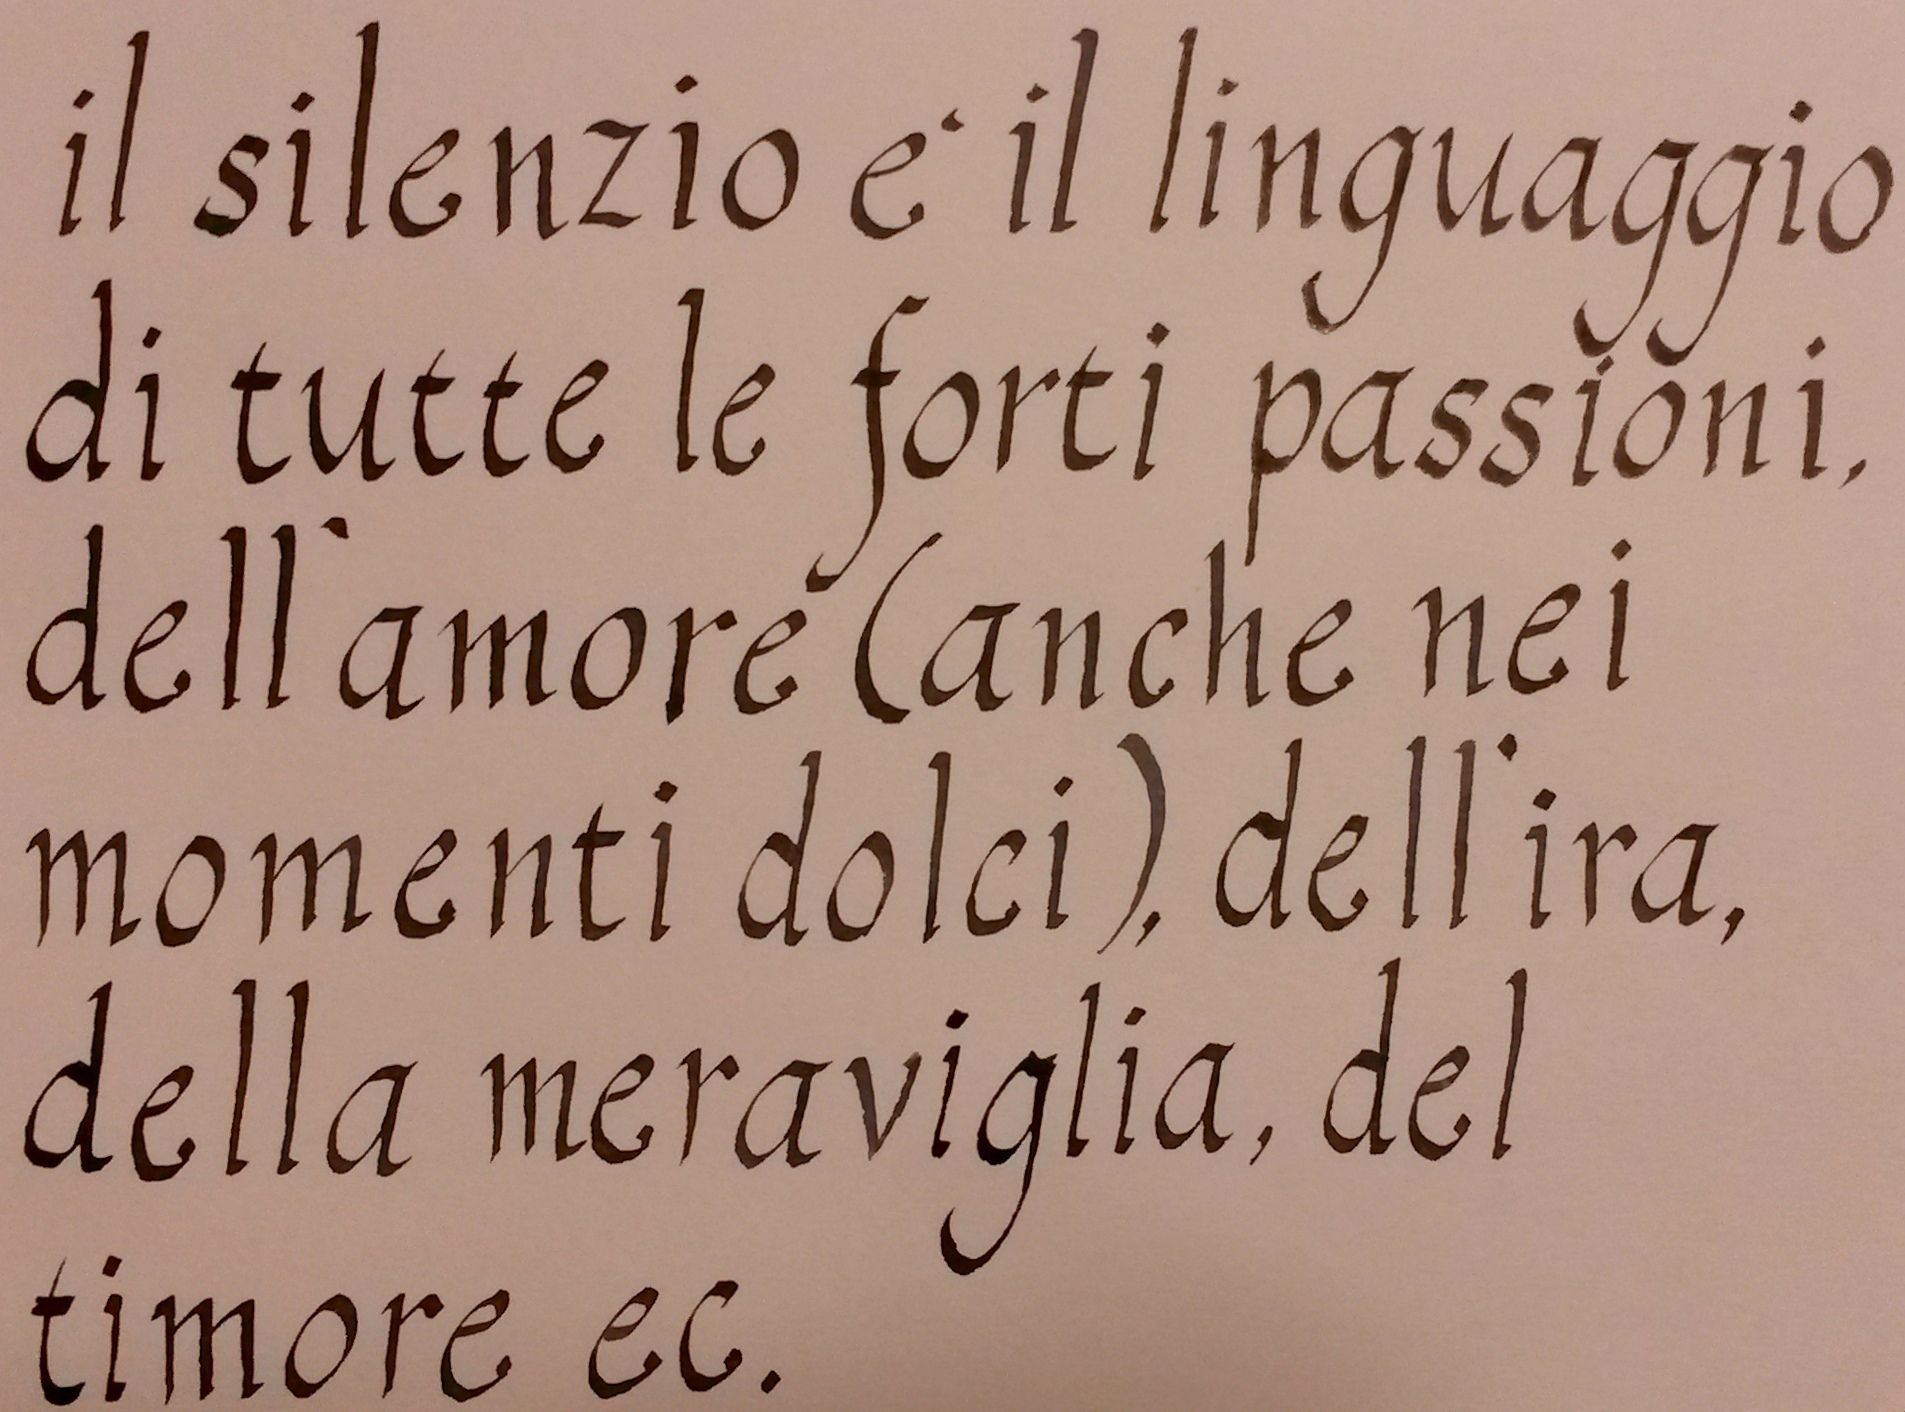 il silenzio è il linguaggio
di tutte le forti passioni,
dell'amore (anche nei
momenti dolci), dell'ira,
della meraviglia, del
timore ec.